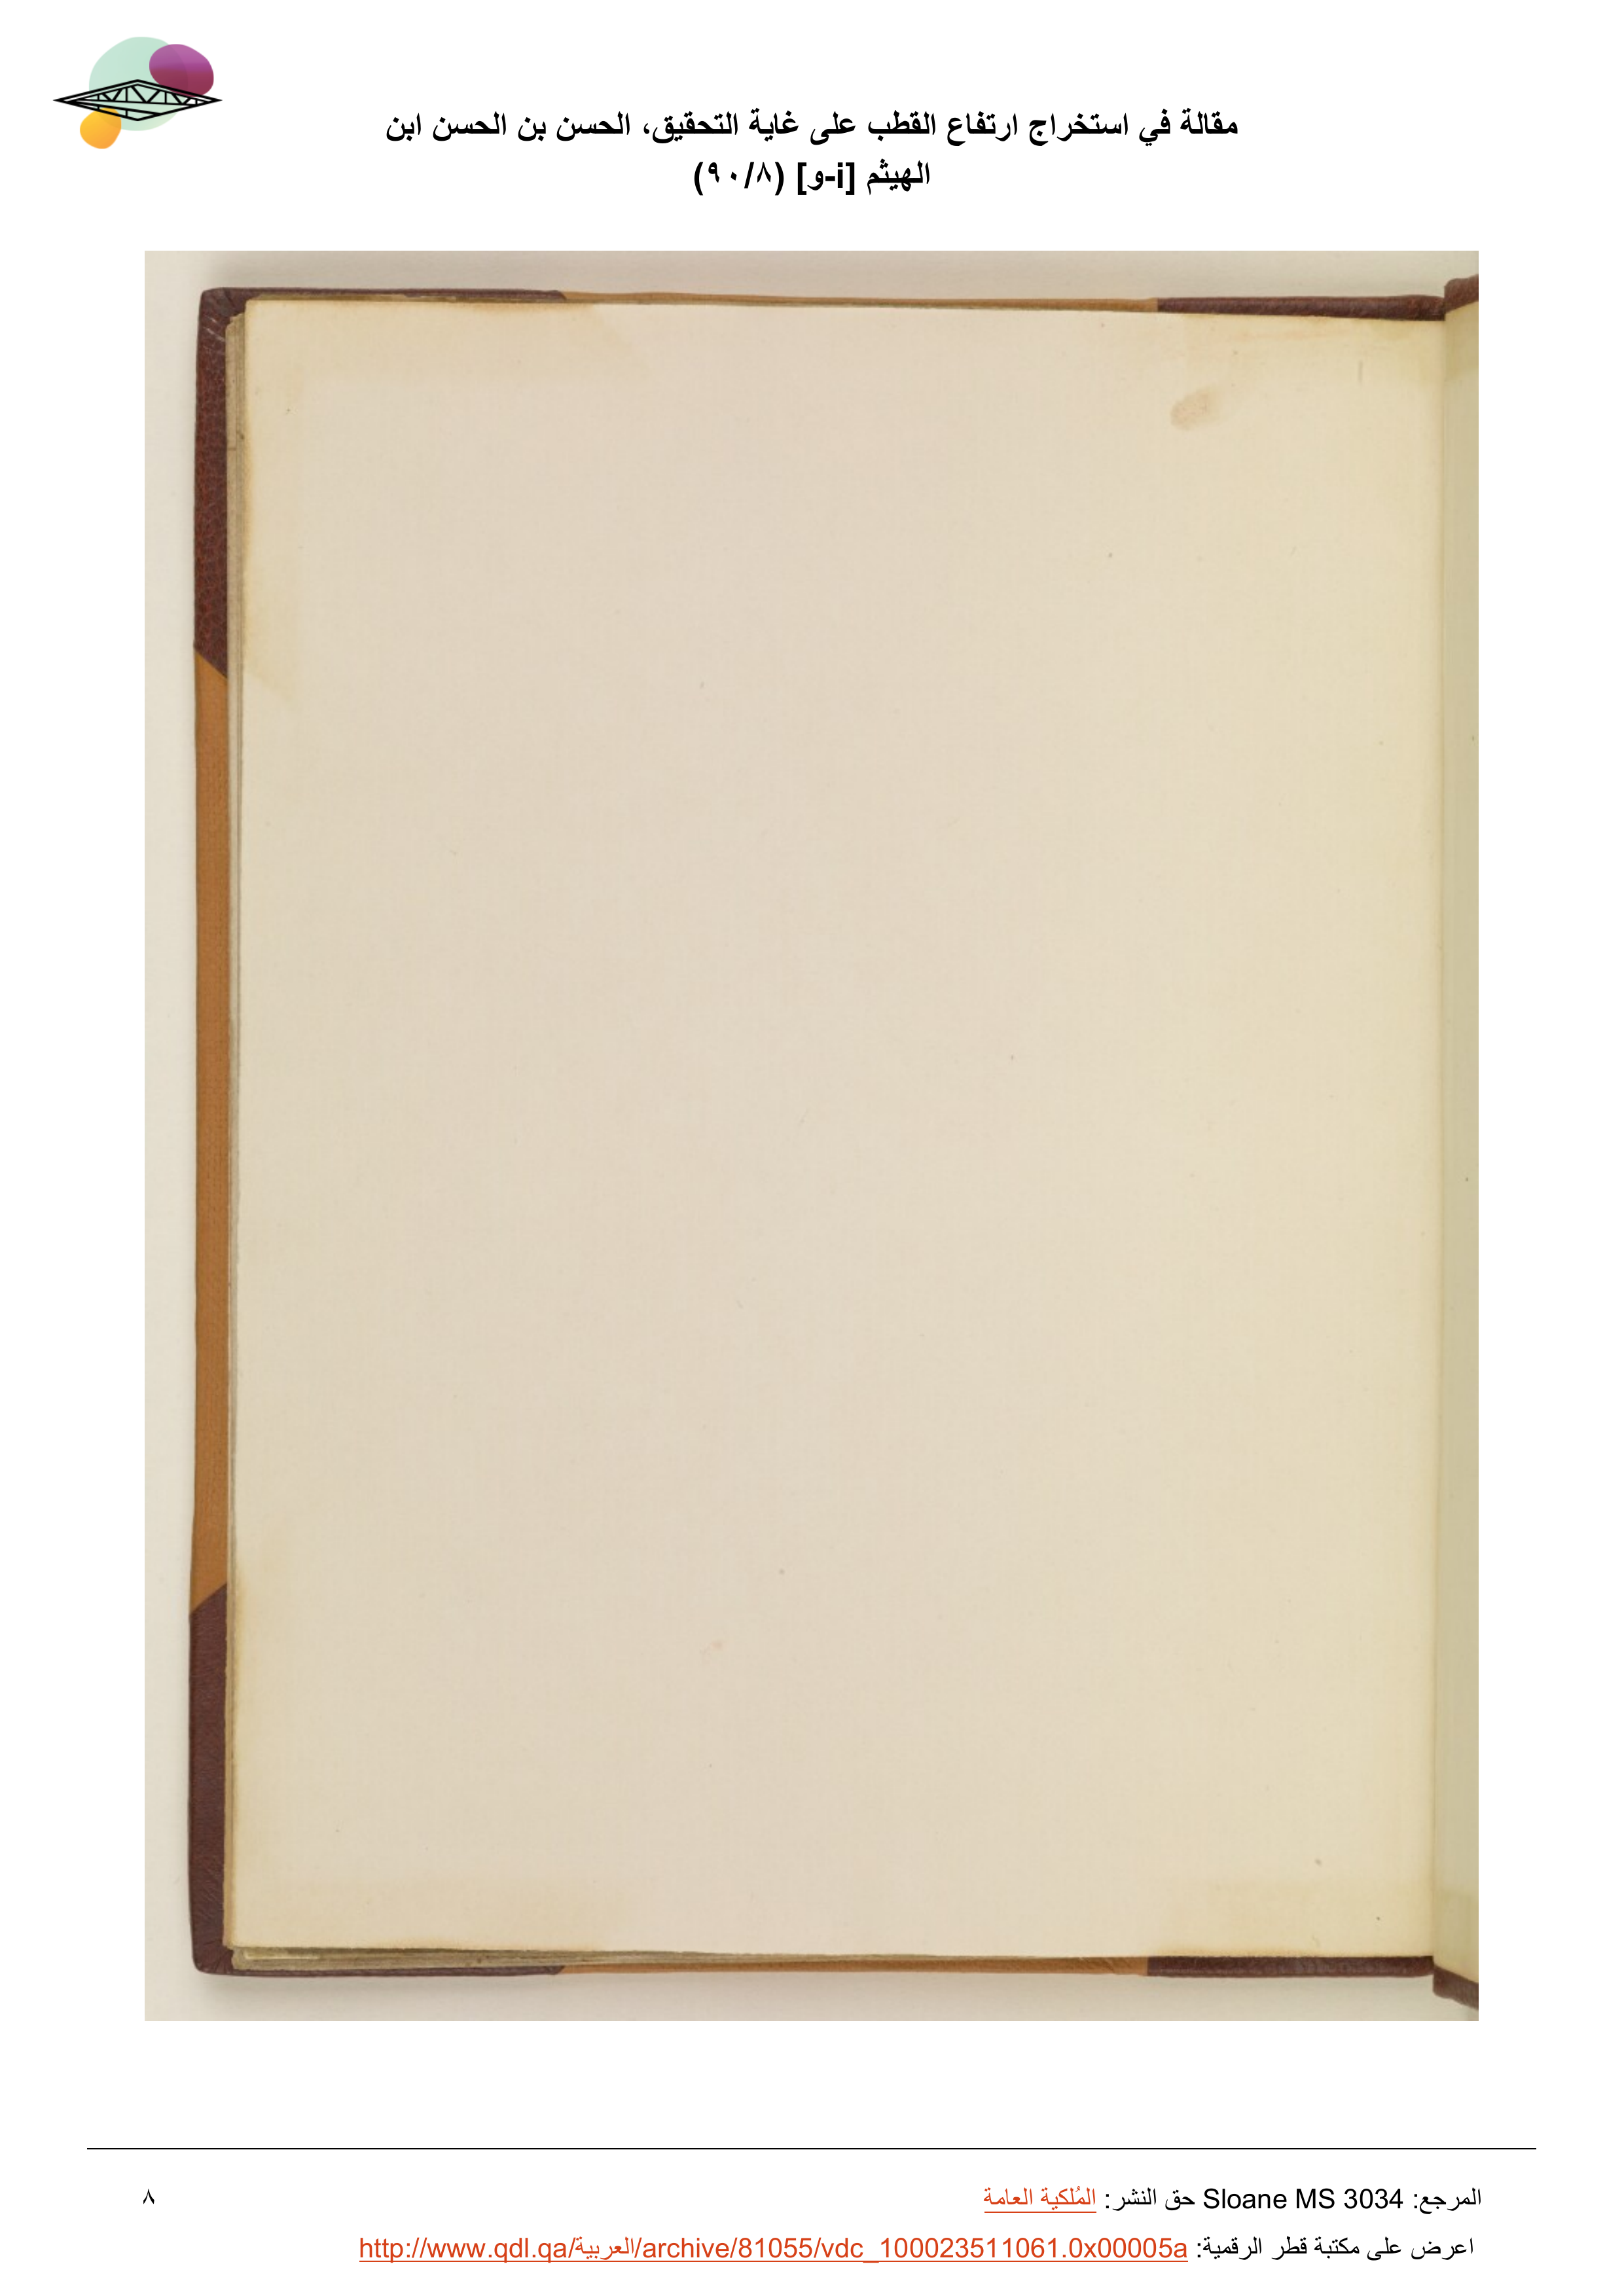 مقالة في استخراج ارتفاع القطب على غاية التحقيق، الحسن بن الحسن ابن
الهيثم [i-و] (٩٠/٨)
المرجع: Sloane MS 3034 حق النشر: المُلكية العامة
٨
اعرض على مكتبة قطر الرقمية: http://www.qdl.qa/العربية/archive/81055/vdc_100023511061.0x00005a